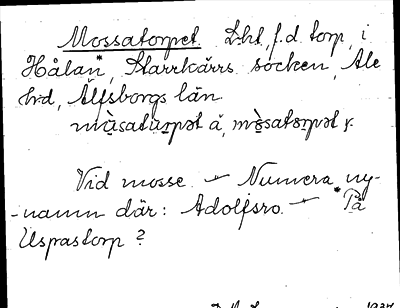 Mossatorpet Lht, f.d. torp, i
Hålan*, Starrkärrs socken, Ale
hrd, Älfsborgs län
mùsatùrpət ä, mòsatorpət y.
Vid mosse. — Numera ny-
-namn där: Adolfsro. — *På
Uspastorp?